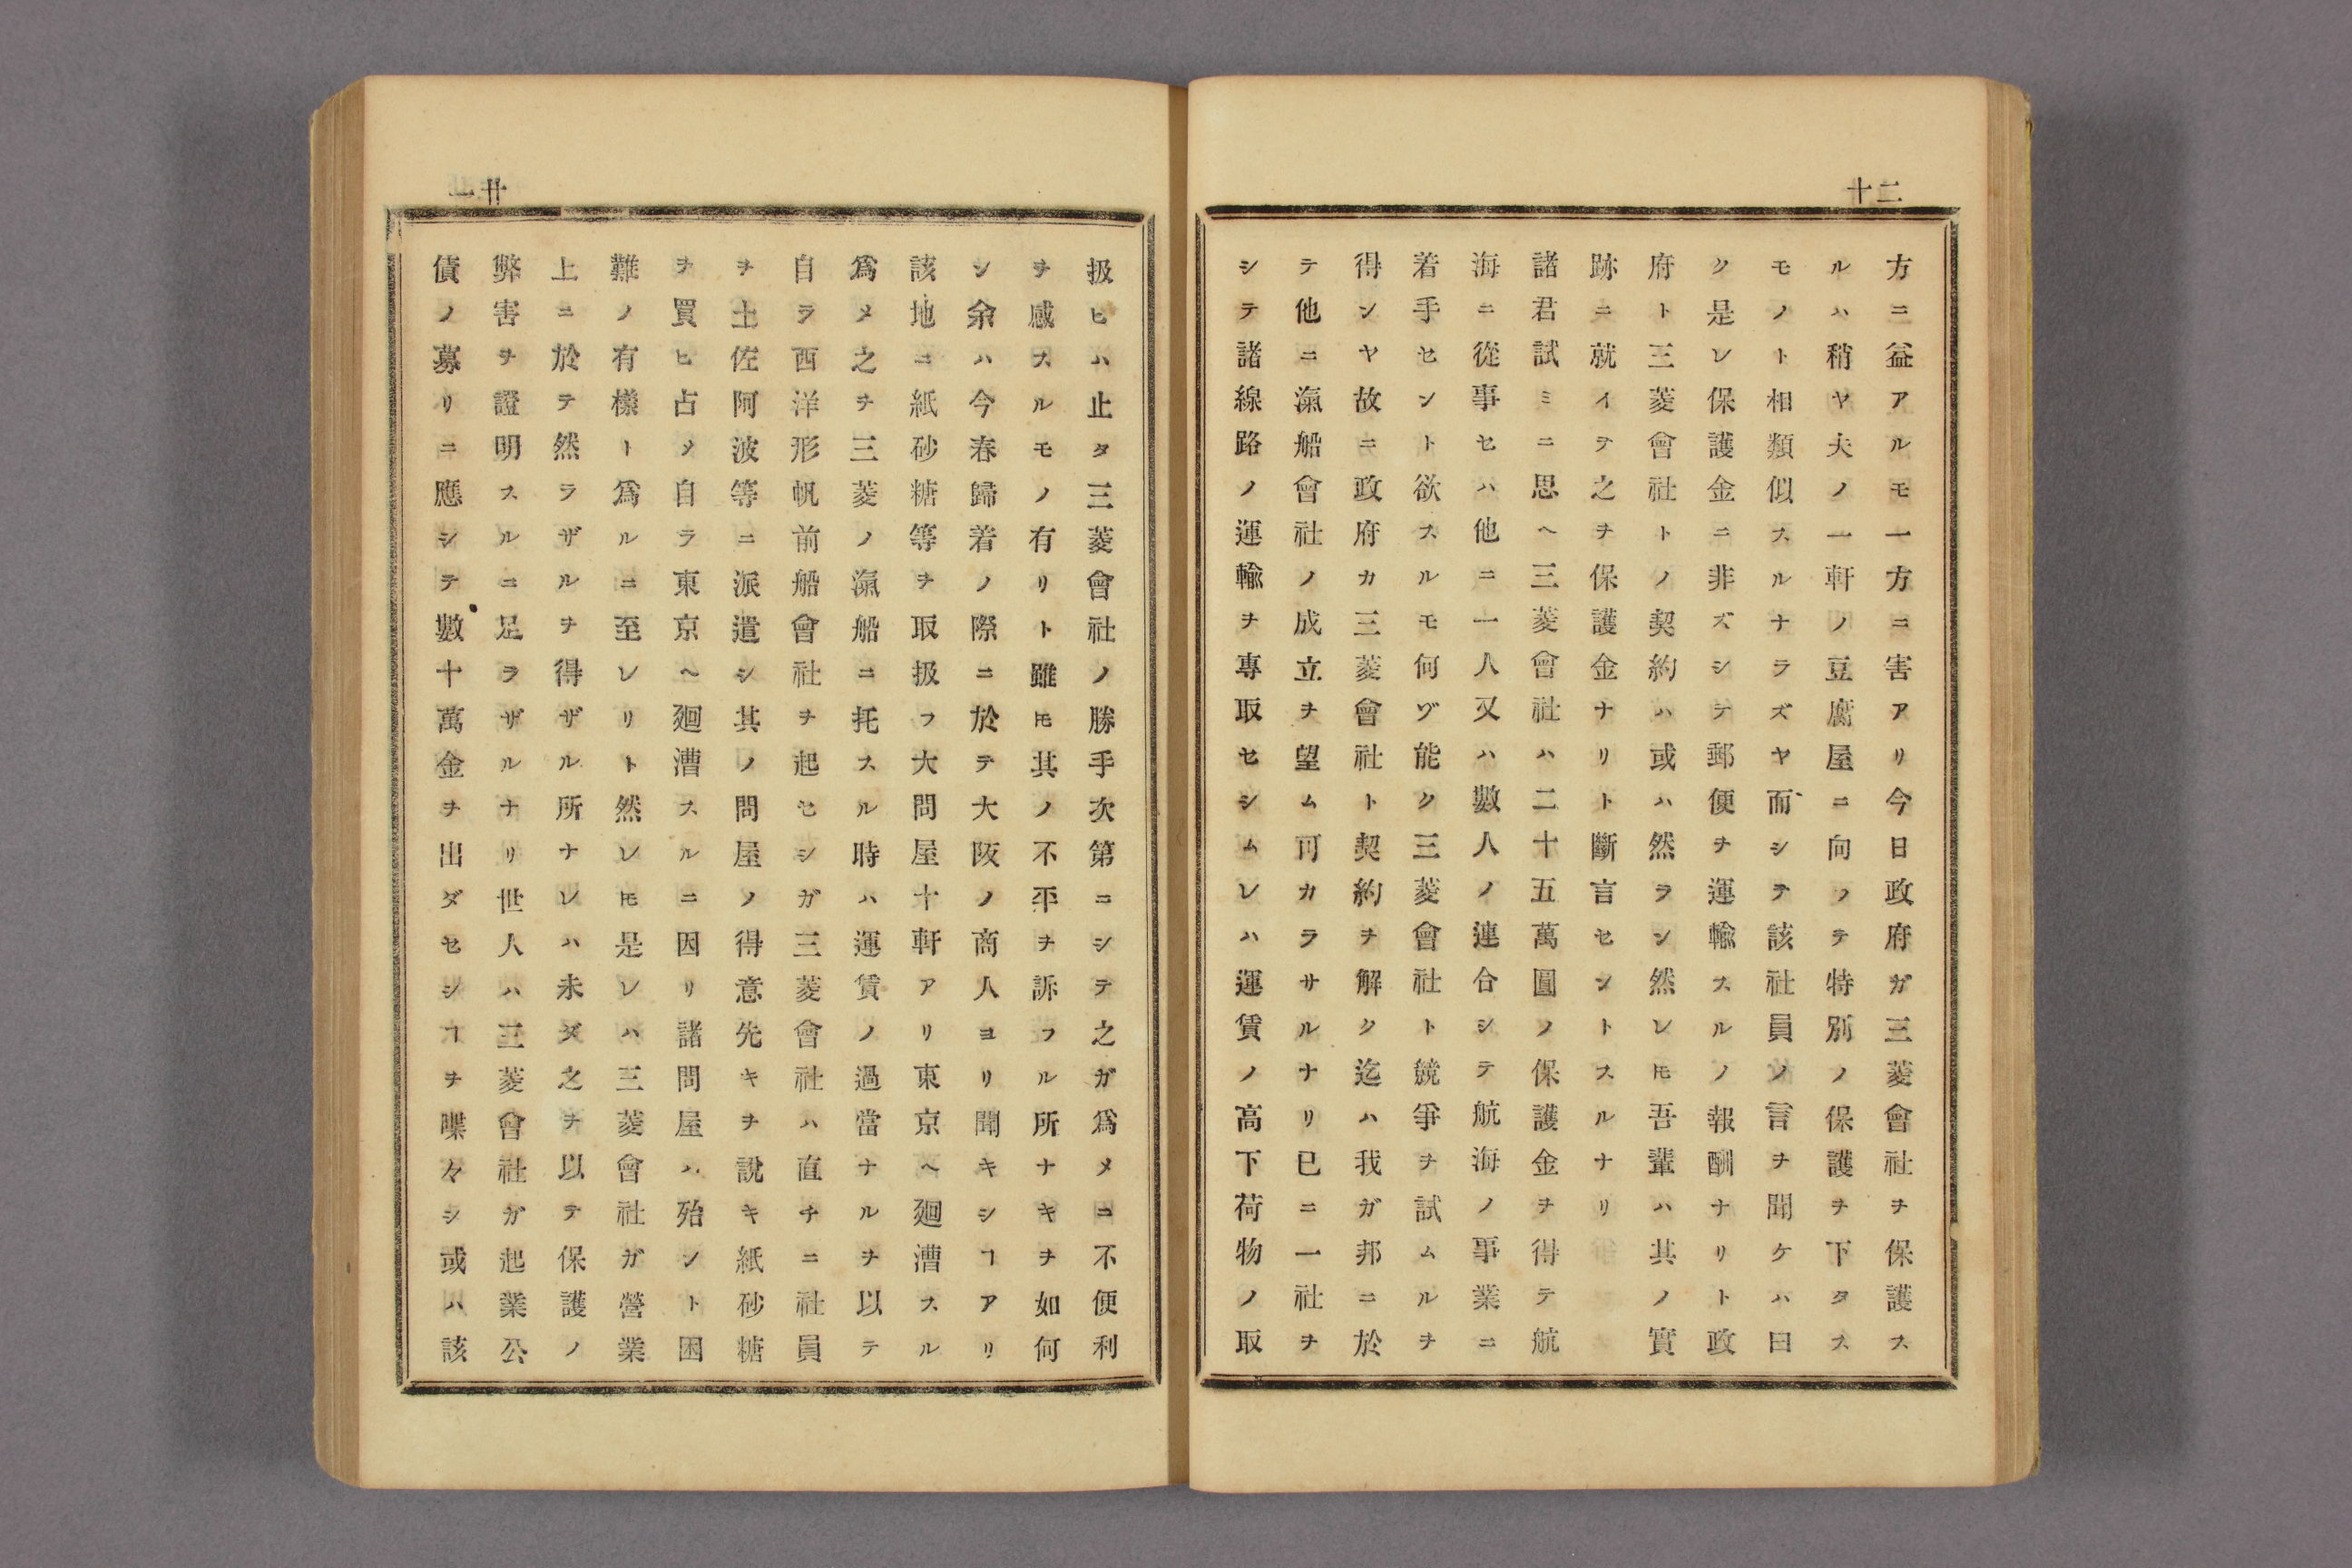 二十
方ニ益アルモ一方ニ害アリ今日政府ガ三菱會社ヲ保護ス
ルハ稍ヤ夫ノ一軒ノ豆腐屋ニ向フテ特別ノ保護ヲ下タス
モノト相類似スルナラズヤ而シテ該社員ノ言ヲ聞ケハ曰
ク是レ保護金ニ非ズシテ郵便ヲ運輸スルノ報酬ナリト政
府ト三菱會社トノ契約ハ或ハ然ラン然レ𪜈吾輩ハ其ノ實
跡ニ就イテ之ヲ保護金ナリト斷言セントスルナリ
諸君試ミニ思ヘ三菱會社ハ二十五萬圓ノ保護金ヲ得テ航
海ニ從事セハ他ニ一人又ハ數人ノ連合シテ航海ノ事業ニ
着手セント欲スルモ何ゾ能ク三菱會社ト競爭ヲ試ムルヲ
得ンヤ故ニ政府カ三菱會社ト契約ヲ解ク迄ハ我ガ邦ニ於
テ他ニ滊船會社ノ成立ヲ望ム可カラサルナリ已ニ一社ヲ
シテ諸線路ノ運輸ヲ專取セシムレハ運賃ノ高下荷物ノ取
廿一
扱ヒハ止タ三菱會社ノ勝手次第ニシテ之ガ爲メニ不便利
ヲ感スルモノ有リト雖𪜈其ノ不平ヲ訴フル所ナキヲ如何
シ余ハ今春歸着ノ際ニ於テ大阪ノ商人ヨリ聞キシヿアリ
該地ニ紙砂糖等ヲ取扱フ大問屋十軒アリ東京ヘ廻漕スル
爲メ之ヲ三菱ノ滊船ニ托スル時ハ運賃ノ過當ナルヲ以テ
自ラ西洋形帆前船會社ヲ起セシガ三菱會社ハ直チニ社員
ヲ土佐阿波等ニ派遣シ其ノ問屋ノ得意先キヲ說キ紙砂糖
ヲ買ヒ占メ自ラ東京ヘ廻漕スルニ因リ諸問屋ハ殆ント困
難ノ有樣ト爲ルニ至レリト然レ𪜈是レハ三菱會社ガ營業
上ニ於テ然ラザルヲ得ザル所ナレハ未ダ之ヲ以テ保護ノ
弊害ヲ證明スルニ足ラザルナリ世人ハ三菱會社ガ起業公
債ノ募リニ應シテ數十萬金ヲ出ダセシヿヲ喋々シ或ハ該